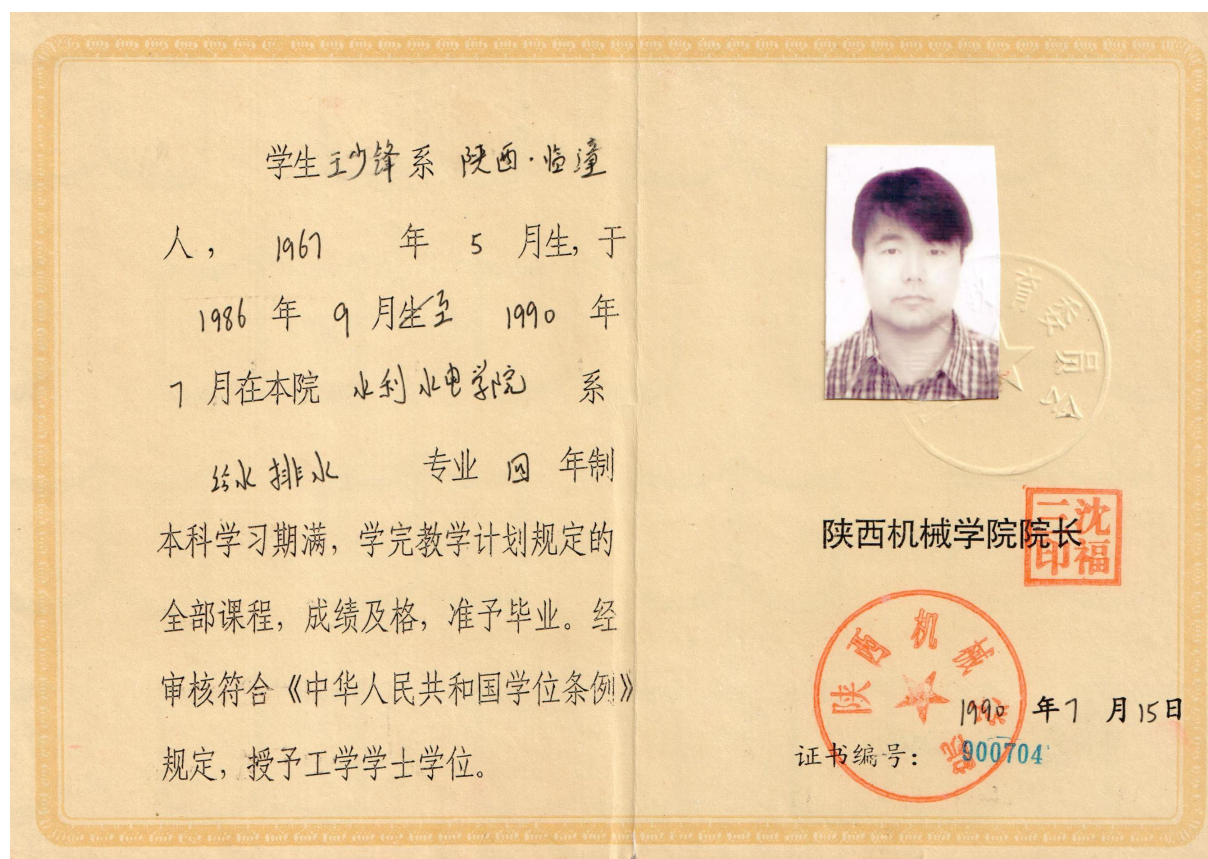 学生王少锋系 陕西·临潼
人， 1967 年 5 月生，于
1986 年 9 月生至 1990 年
7 月在本院 水利水电学院 系
给水排水 专业 四 年制
本科学习期满，学完教学计划规定的
全部课程，成绩及格，准予毕业。经
审核符合《中华人民共和国学位条例》
规定，授予工学学士学位。
育委员会
陕西机械学院院长
沈福三印
陕西机械学院
1990 年 7 月 15 日
证书编号： 900704